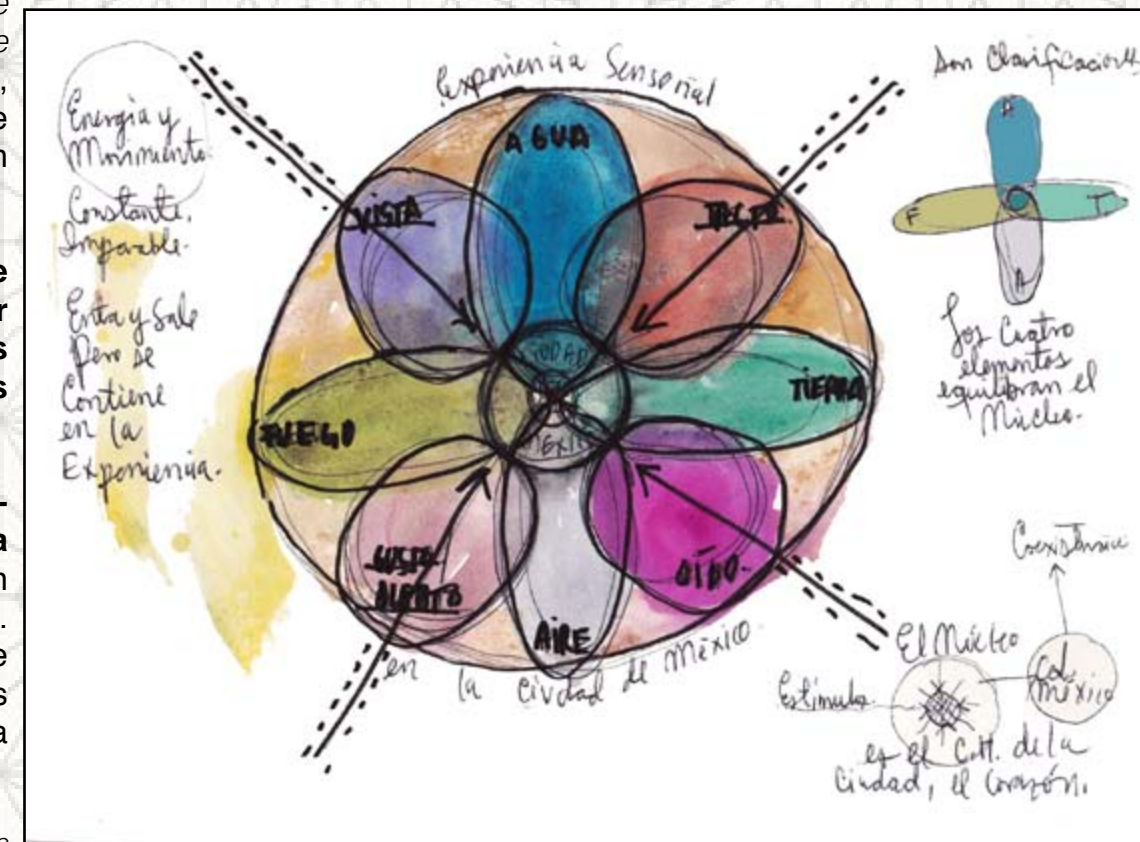 Experiencia Sensorial
Energía y
Movimiento.
Constante.
Imparable.
Entra y Sale
Pero se
Contiene
en la
Experiencia.
AGUA
VISTA
TACTO
CIUDAD
MEXICO
FUEGO
TIERRA
GUSTO
OLFATO
OÍDO.
AIRE
en la Ciudad de México.
Son Clasificaciones
A
F
T
A
Los Cuatro
elementos
equilibran el
Núcleo.
Coexistencia
El Núcleo
Cd.
México
Estímulo.
es el C.H. de la
Ciudad, el Corazón.